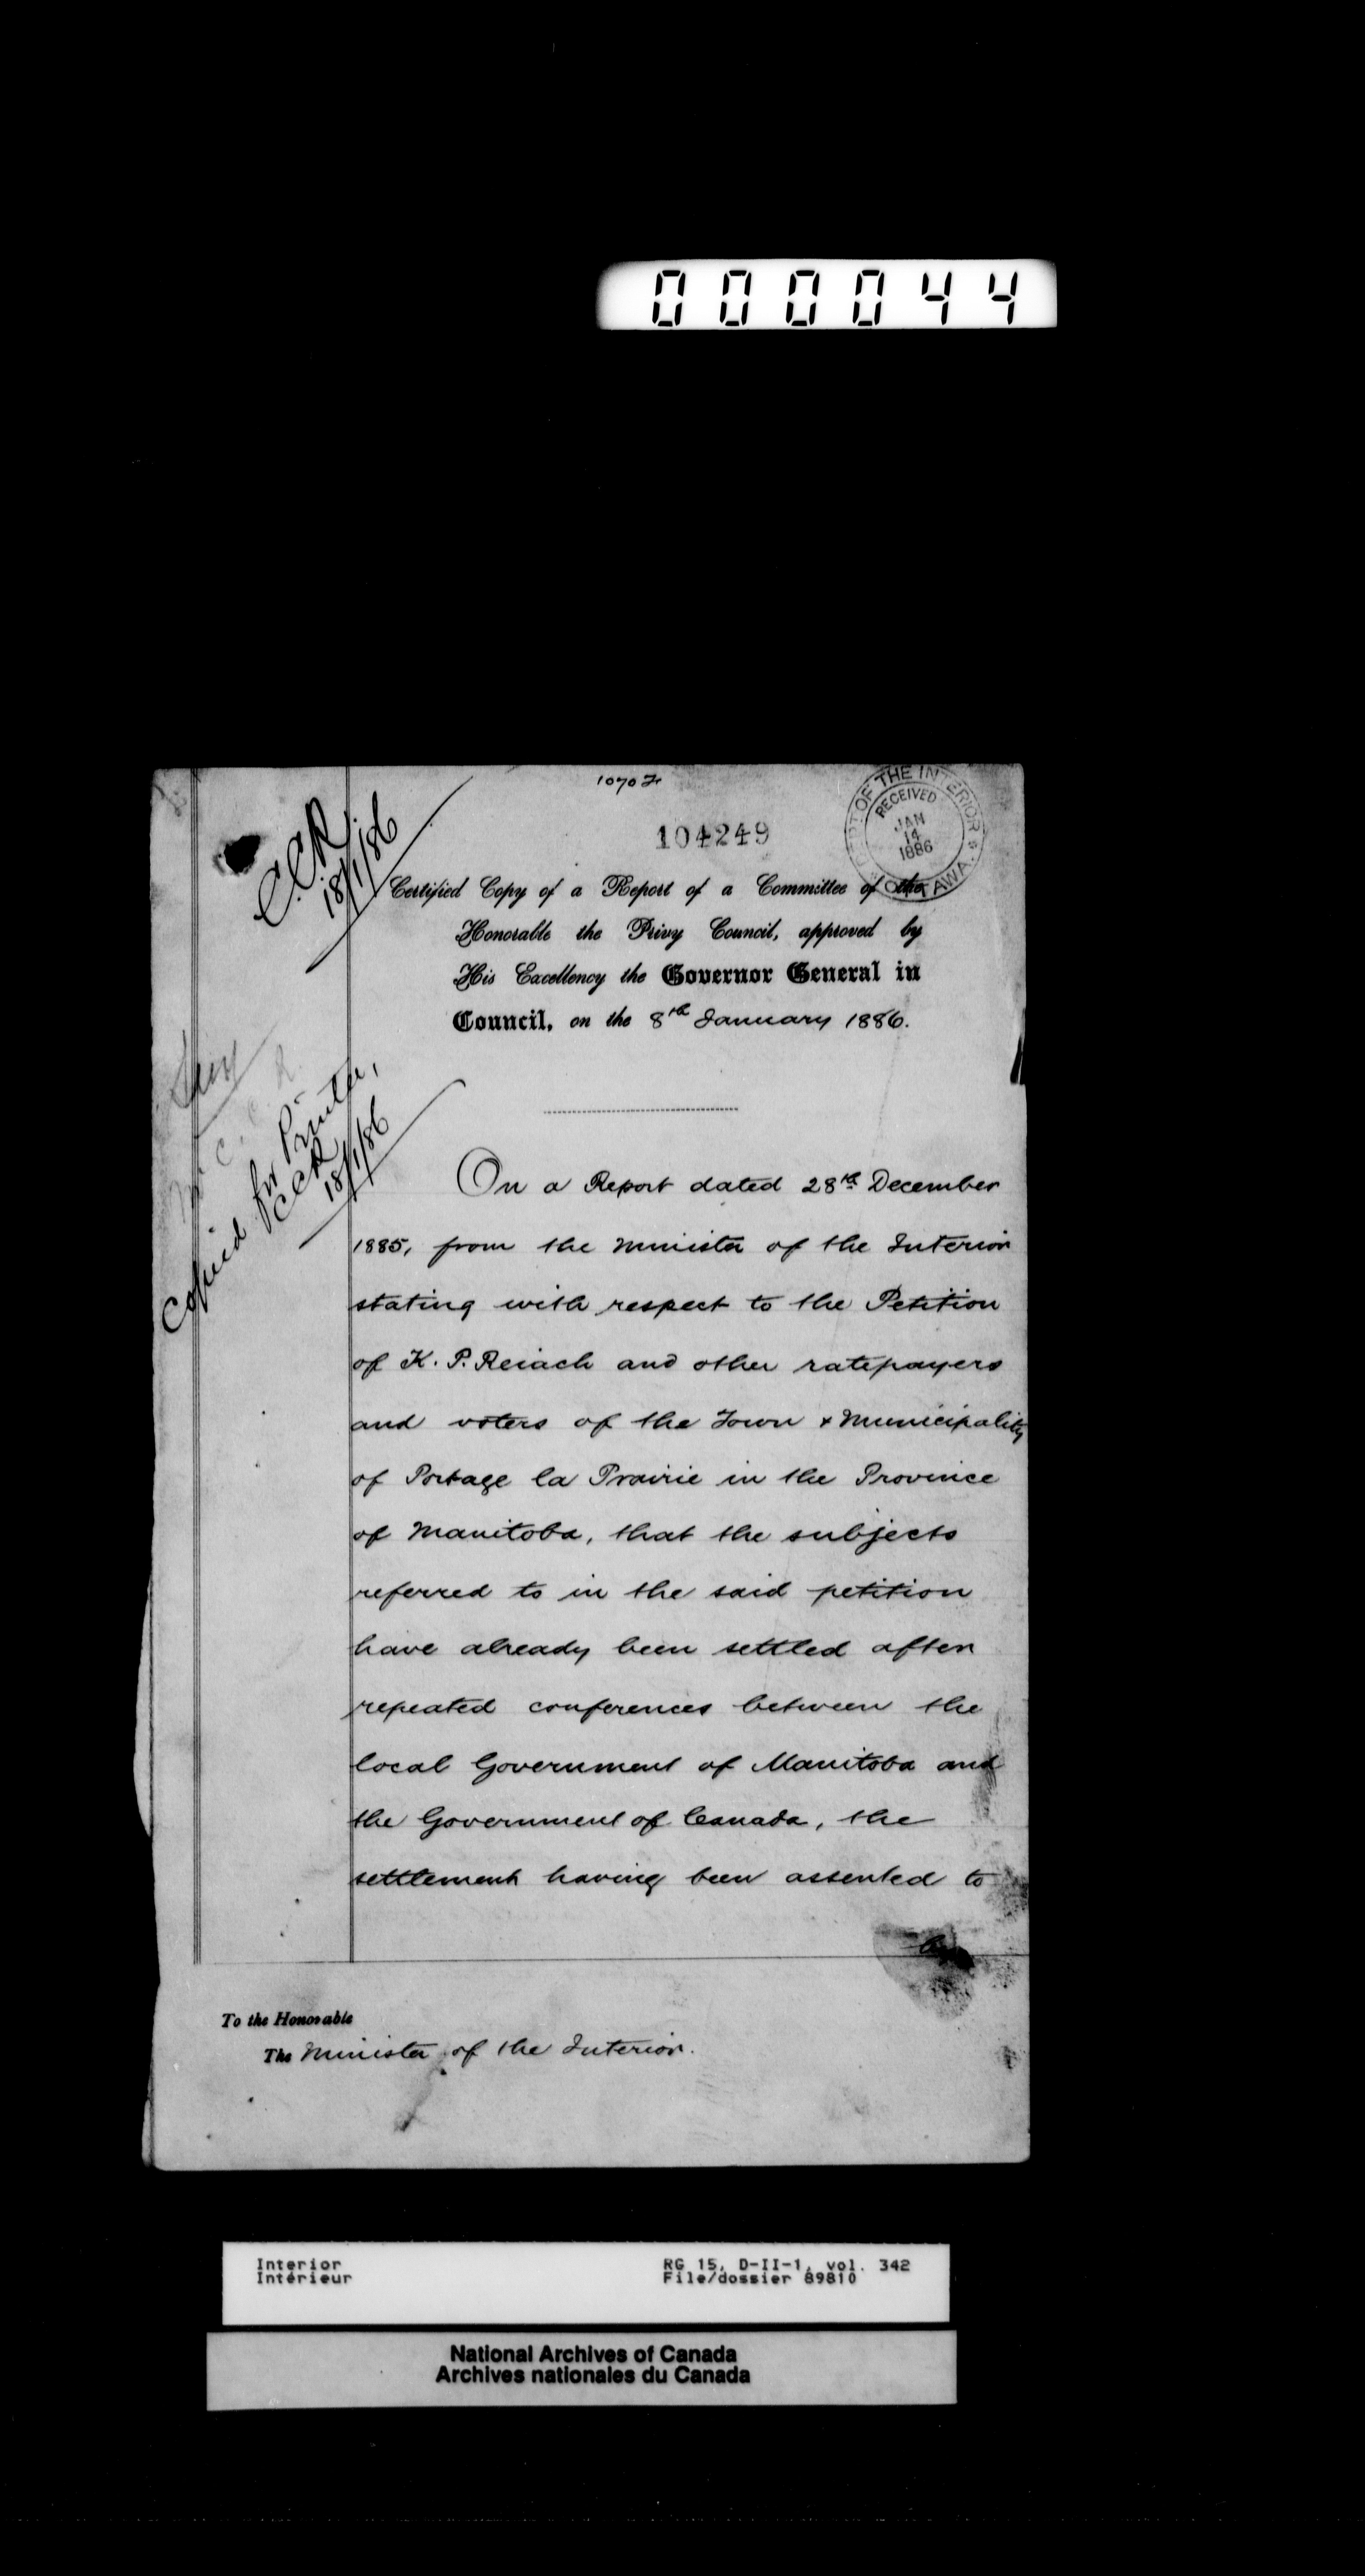 000044
1070 F
104249
DEPT OF THE INTERIOR
RECEIVED
JAN
14
1886
OTTAWA
C.C.R.
18/1/86
Certified Copy of a Report of a Committee of the
Honorable the Privy Council, approved by
His Excellency the Governor General in
Council, on the 8th January 1886.
Copied for Printer,
CCR
18/1/86
On a Report dated 28th December
1885, from the Minister of the Interior
stating with respect to the Petition
of K. P. Reiach and other ratepayers
and voters of the Town & Municipality
of Portage la Prairie in the Province
of Manitoba, that the subjects
referred to in the said petition
have already been settled after
repeated conferences between the
local Government of Manitoba and
the Government of Canada, the
settlement having been assented to
by
To the Honorable
The Minister of the Interior.
Interior
Intérieur
RG 15, D-II-1, vol. 342
File/dossier 89810
National Archives of Canada
Archives nationales du Canada